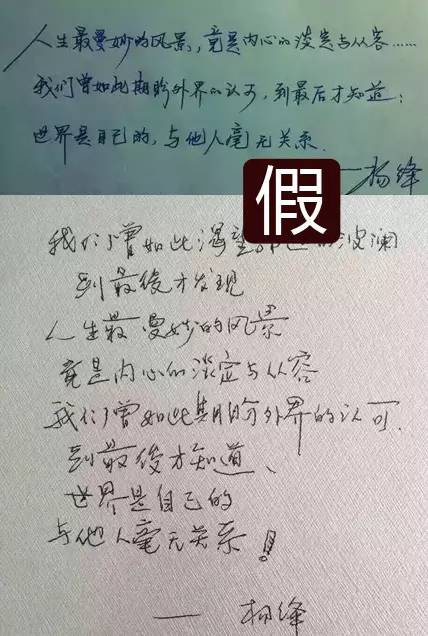 人生最曼妙的风景，竟是内心的淡定与从容……
我们曾如此期盼外界的认可，到最后才知道：
世界是自己的，与他人毫无关系.
——杨绛
假
我们曾如此渴望 的波澜
到最後才发现
人生最曼妙的风景
竟是内心的淡定与从容
我们曾如此期盼外界的认可.
到最後才知道、
世界是自己的
与他人毫无关系！
— 杨绛